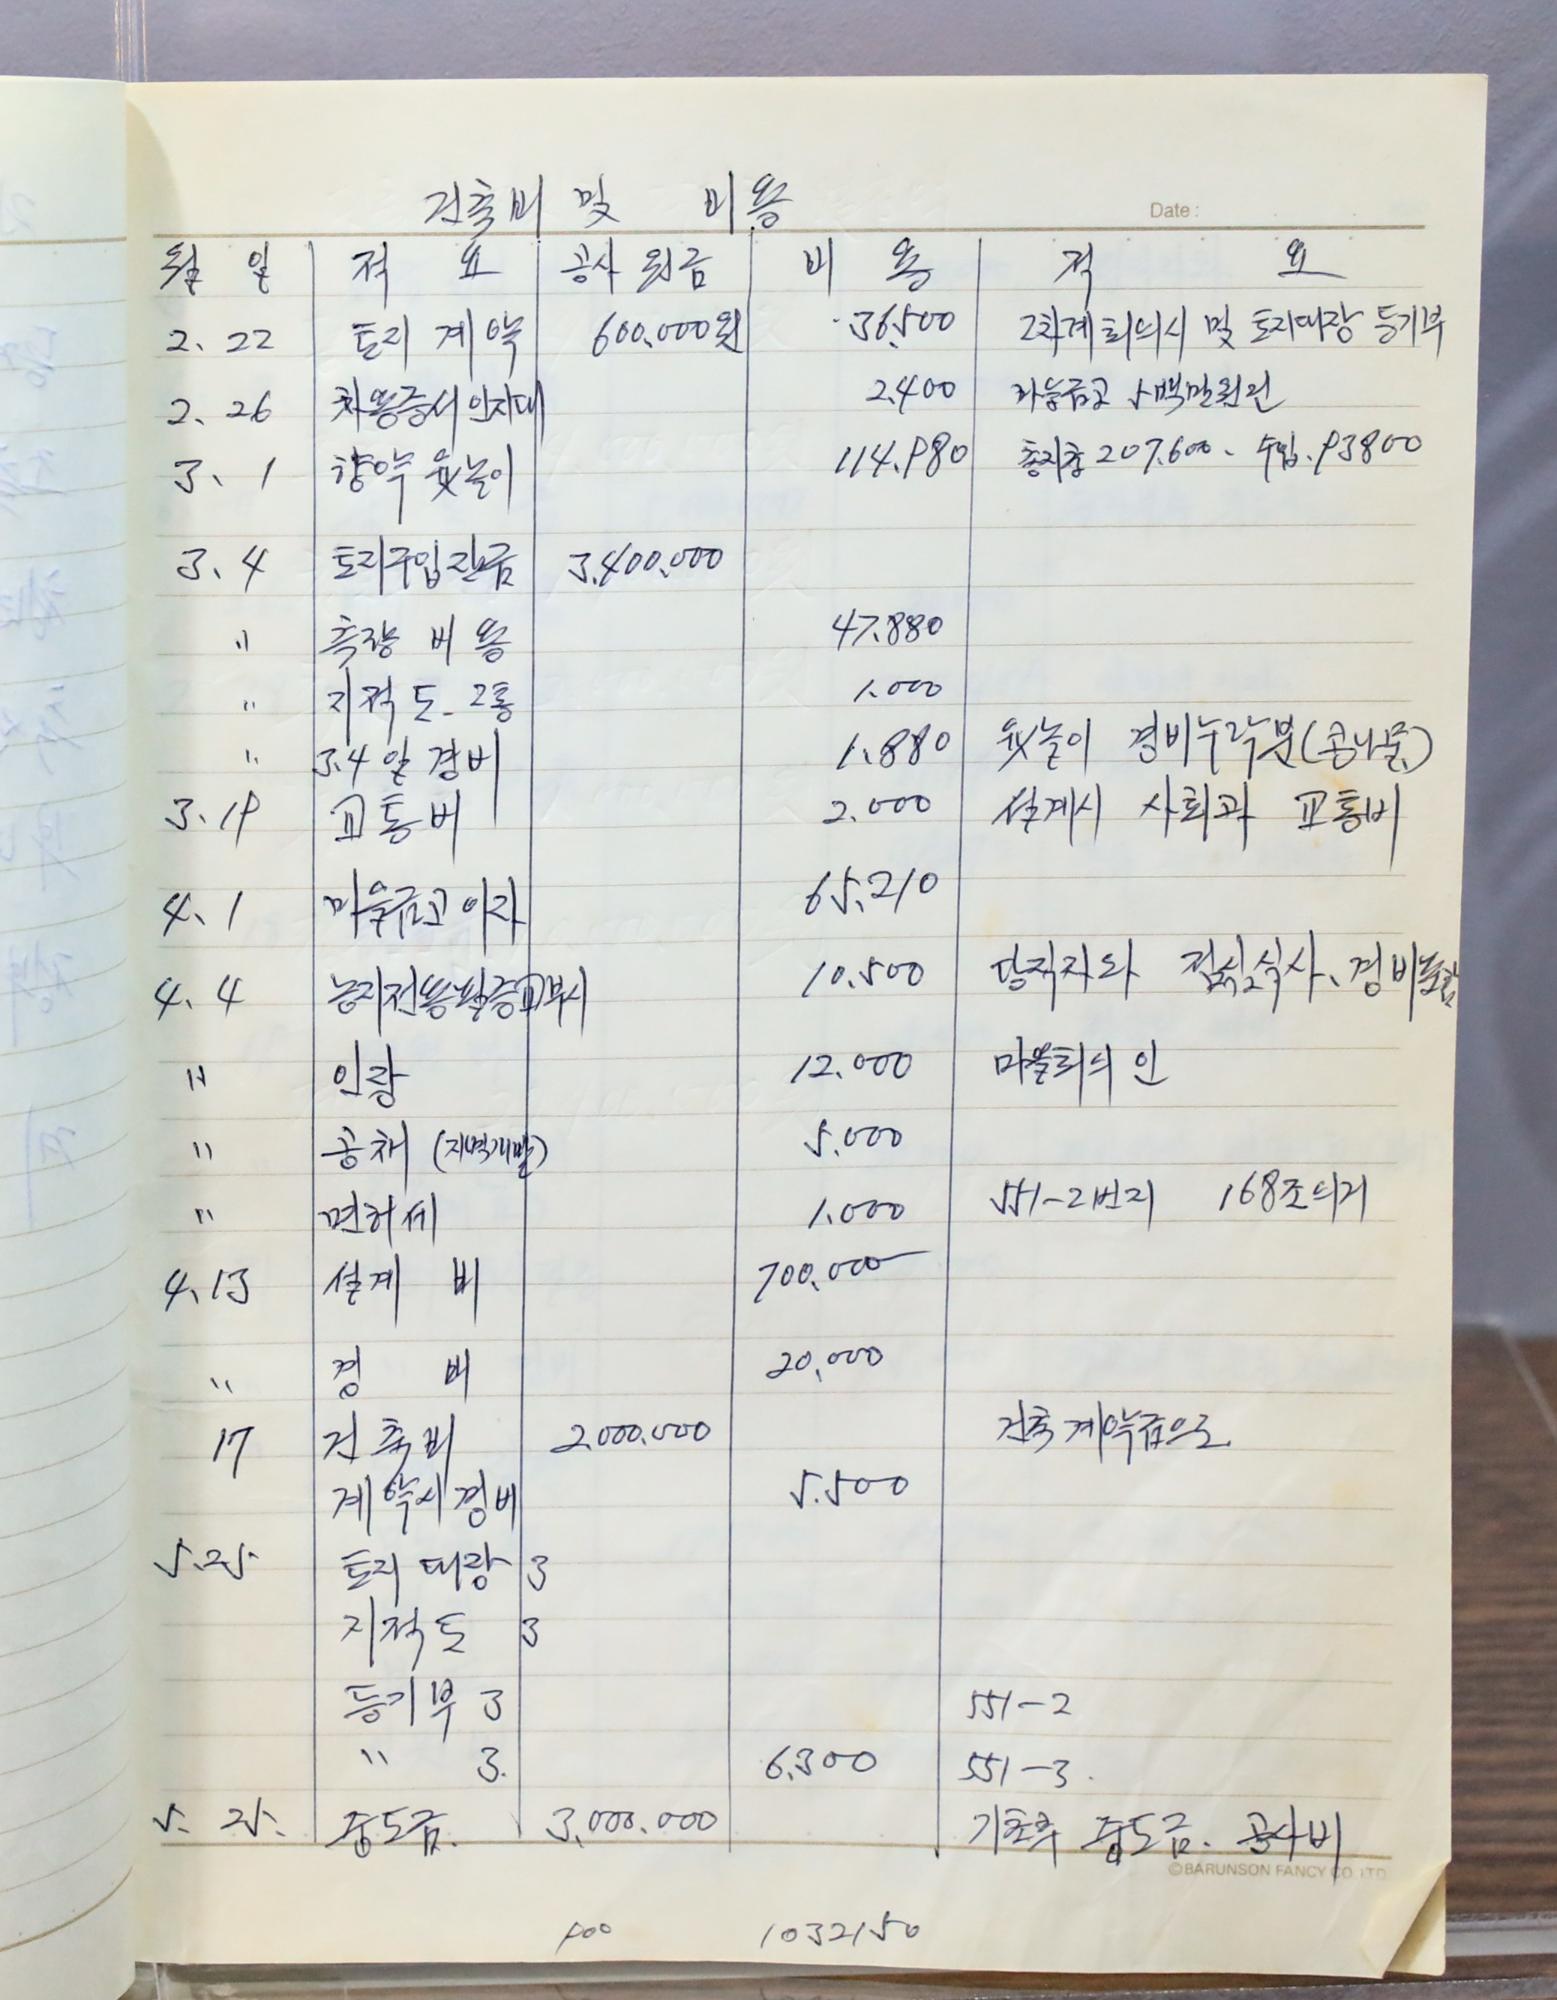 건축비 및 비용
Date :
월 일 적 요 공사 원금 비 용 적 요
2. 22 토지 계약 600.000원 36.500 2차계 회의시 및 토지대장 등기부
2. 26 차용증서 인지대 2.400 마을금고 5백만원
3. 1 향약 윷놀이 114.980 총지출 207.600. 수입. 93800
3. 4 토지구입잔금 3.400.000
〃 측량 비용 47.880
〃 지적도 2통 1.000
〃 3.4일 경비 1.880 윷놀이 경비누락분(콩나물)
3. 19 교통비 2.000 설계시 사회과 교통비
4. 1 마을금고이자 65.210
4. 4 농지전용필증교부시 10.500 당직자와 점심식사. 경비포함
〃 인장 12.000 마을회의 인
〃 공채 (지역개발) 5.000
〃 면허세 1.000 551-2번지 168조의거
4. 13 설계 비 700.000
〃 경 비 20.000
17 건축비 2.000.000 건축계약금으로
계약시경비 5.500
5. 25 토지 대장 3
지적도 3
등기부 3 551-2
〃 3. 6.300 551-3.
5. 25. 중도금. 3.000.000 기초후 중도금. 공사비
©BARUNSON FANCY CO. LTD
1032150